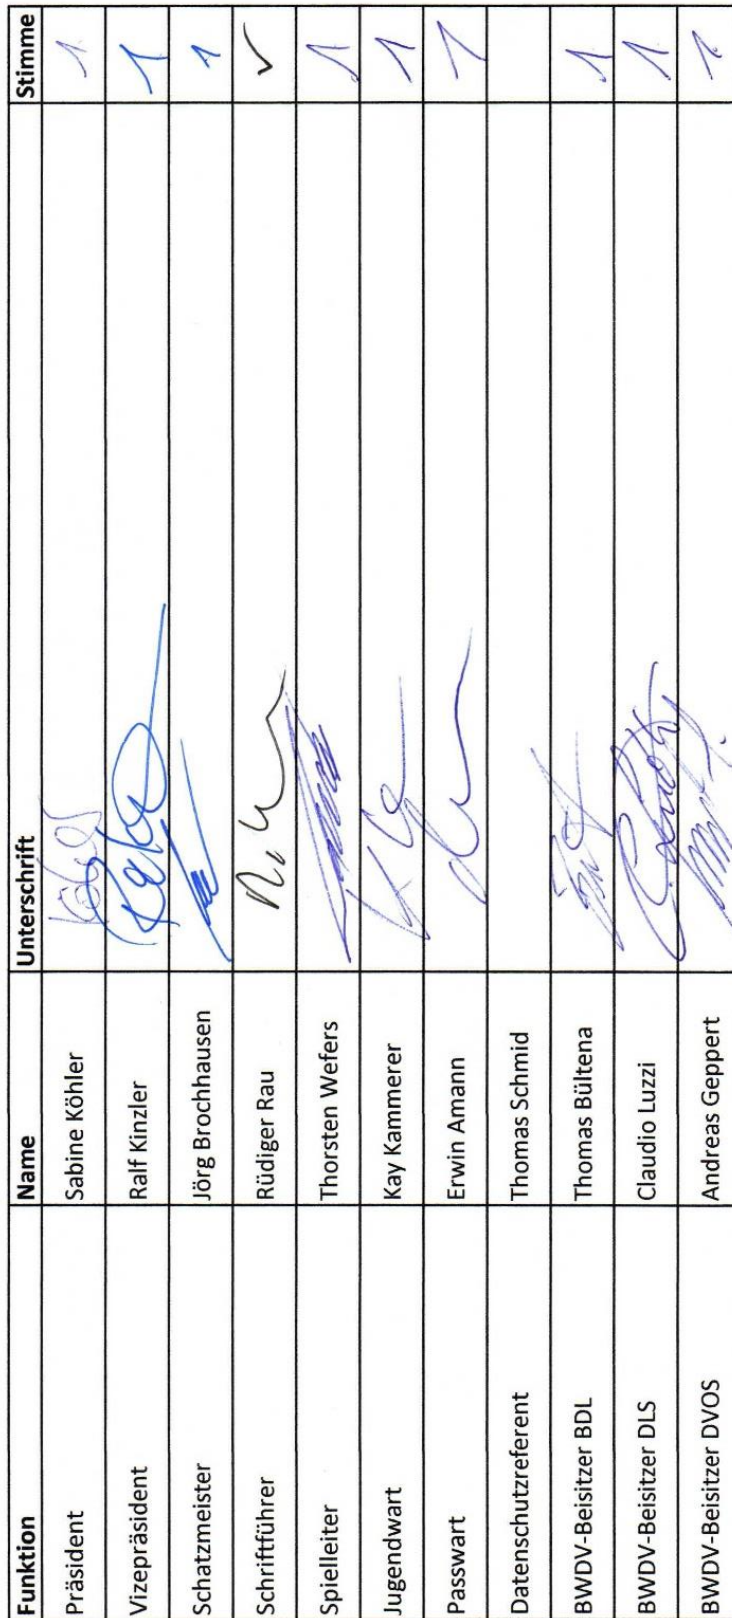 Funktion Name Unterschrift Stimme
Präsident Sabine Köhler Köhler 1
Vizepräsident Ralf Kinzler 1
Schatzmeister Jörg Brochhausen 1
Schriftführer Rüdiger Rau ✓
Spielleiter Thorsten Wefers 1
Jugendwart Kay Kammerer 1
Passwart Erwin Amann 1
Datenschutzreferent Thomas Schmid
BWDV-Beisitzer BDL Thomas Bültena 1
BWDV-Beisitzer DLS Claudio Luzzi 1
BWDV-Beisitzer DVOS Andreas Geppert 1